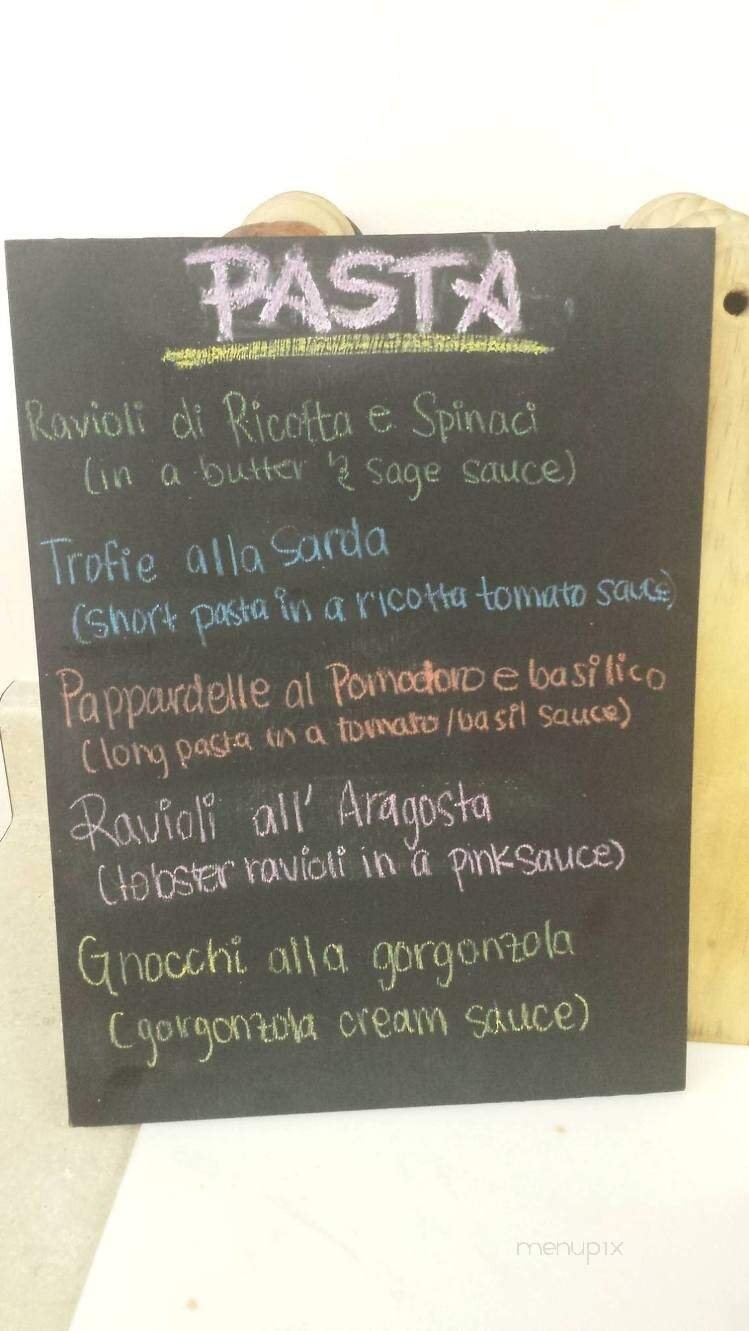 PASTA
Ravioli di Ricotta e Spinaci
(in a butter & sage sauce)
Trofie alla Sarda
(short pasta in a ricotta tomato sauce)
Pappardelle al Pomodoro e basilico
(long pasta in a tomato/basil sauce)
Ravioli all' Aragosta
(lobster ravioli in a pink sauce)
Gnocchi alla gorgonzola
(gorgonzola cream sauce)
menupix